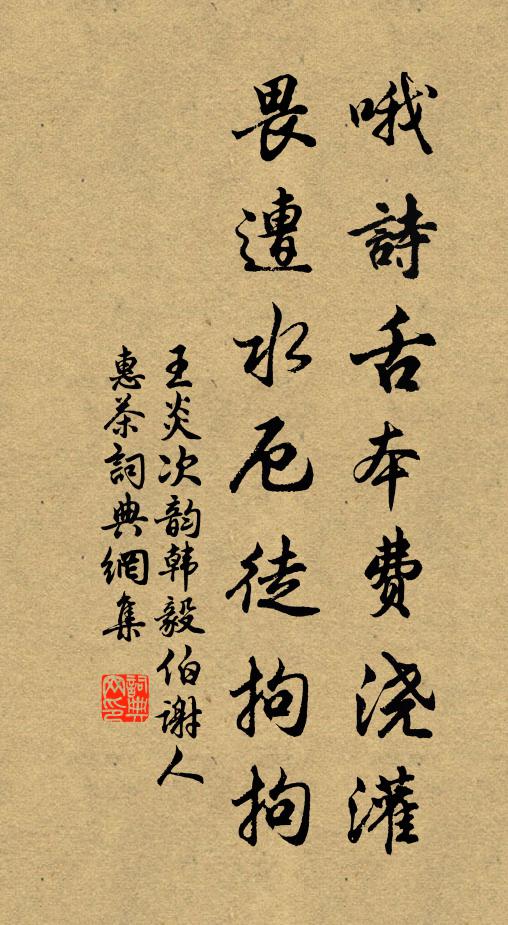 哦詩舌本费浇灌
畏遭水厄徒拘拘
王炎次韵韩毅伯谢人
惠茶詞典網集
詞典網印